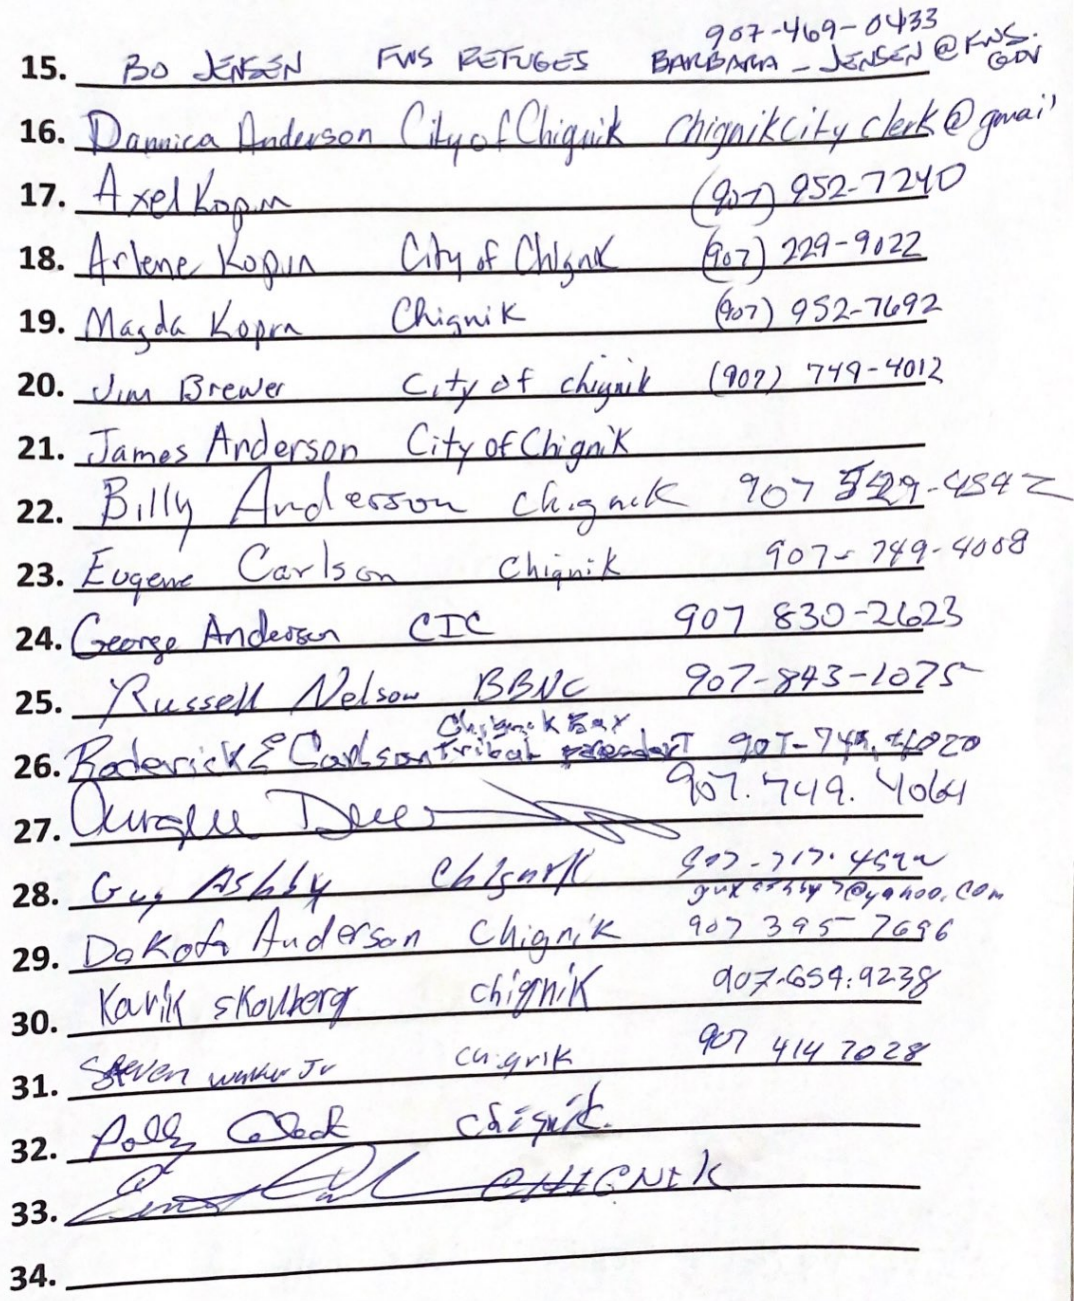 907-469-0433
15. BO JENSEN FWS REFUGES BARBARA_JENSEN@FWS.GOV
16. Dannica Anderson City of Chignik Chignikcityclerk@gmail
17. Axel Kopun (907) 952-7240
18. Arlene Kopun City of Chignik (907) 229-9022
19. Magda Kopun Chignik (907) 952-7692
20. Jim Brewer City of chignik (907) 749-4012
21. James Anderson City of Chignik
22. Billy Anderson chignik 907 529-4542
23. Eugene Carlson Chignik 907-749-4008
24. George Anderson CIC 907 830-2623
25. Russell Nelson BBNC 907-843-1075
Chignik Bay
26. Roderick E Carlson Tribal 907-749-4020
27. 907.749.4064
28. Guy Ashby Chignik
29. Dakota Anderson Chignik 907 395 7696
30. Karik Skonberg chignik 907.654.9238
31. Steven Jr chignik 907 414 7028
32. Polly chignik.
33. CHIGNIK
34.